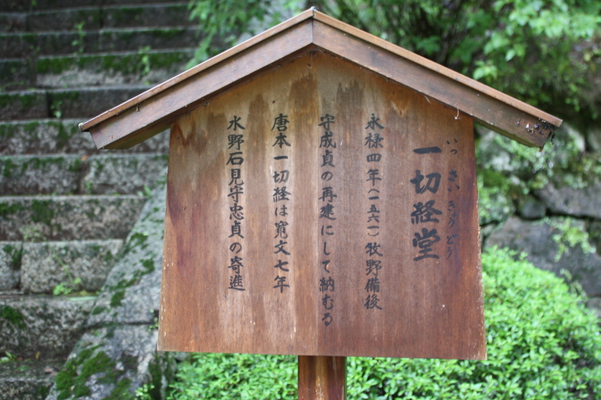 いっさいきょうどう
一切経堂
永禄四年(一五六一)牧野備後
守成貞の再建にして納むる
唐本一切経は寛文七年
水野石見守忠貞の寄進